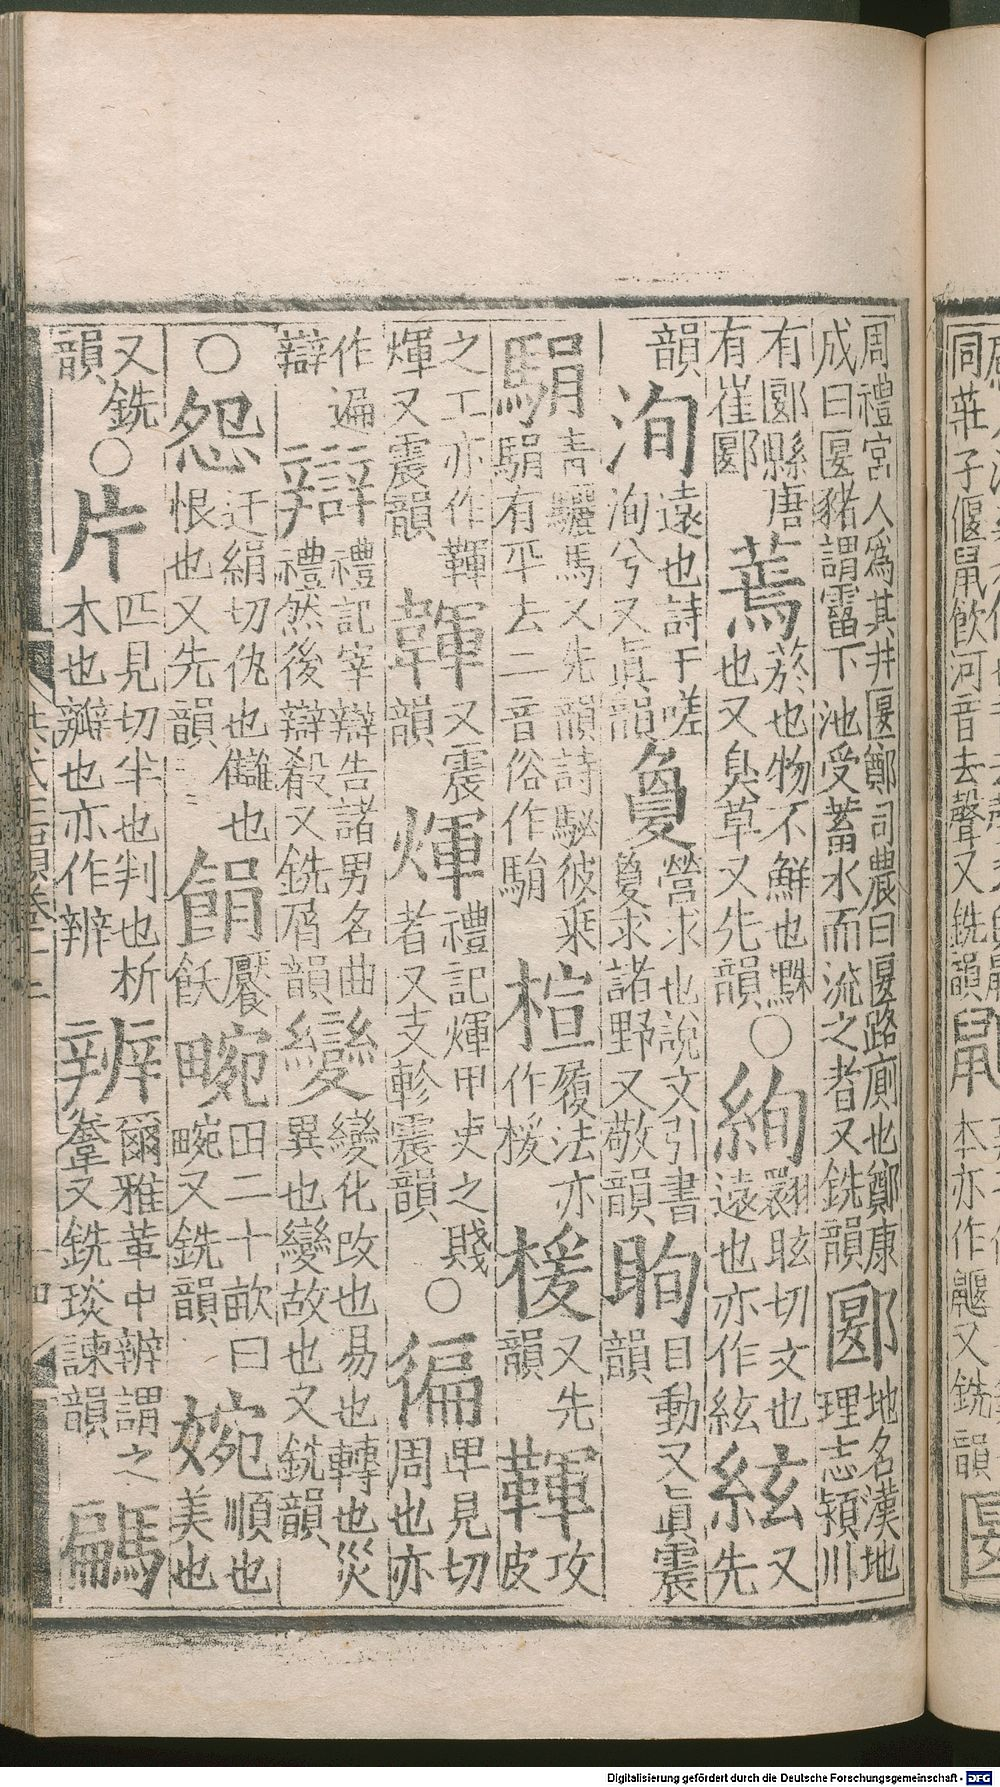 周禮宮人爲其井匽鄭司農曰匽路廁也鄭康成曰匽豬謂霤下池受蓄水而流之者又銑韻郾地名漢地理志潁川
有郾縣唐有崔郾蔫菸也物不鮮也黦也又臭草又先韻○絢翾眩切文也遠也亦作絃絃又先
韻洵遠也詩于嗟洵兮又眞韻敻營求也說文引書敻求諸野又敬韻眴目動又眞震韻
駽青驪馬又先韻詩駜彼乘駽有平去二音俗作駽楦履法亦作楥楥又先韻鞾攻皮
之工亦作韗煇又震韻韗又震韻煇禮記煇甲吏之賤者又支軫震韻○徧卑見切周也亦
作遍辯辯禮記宰辯告諸男名禮然後辯殽又銑屑韻變變化改也易也轉也災異也變故也又銑韻
○怨迂絹切仇也讎也恨也又先韻餶饜飫畹田二十畝曰畹又銑韻婉順也美也
又銑韻○片匹見切半也判也析木也瓣也亦作辨辨爾雅革中辨謂之韏又銑琰諫韻騗
同莊子偃鼠飲河音去聲又銑韻
本亦作鼴又銑韻
Digitalisierung gefördert durch die Deutsche Forschungsgemeinschaft - DFG